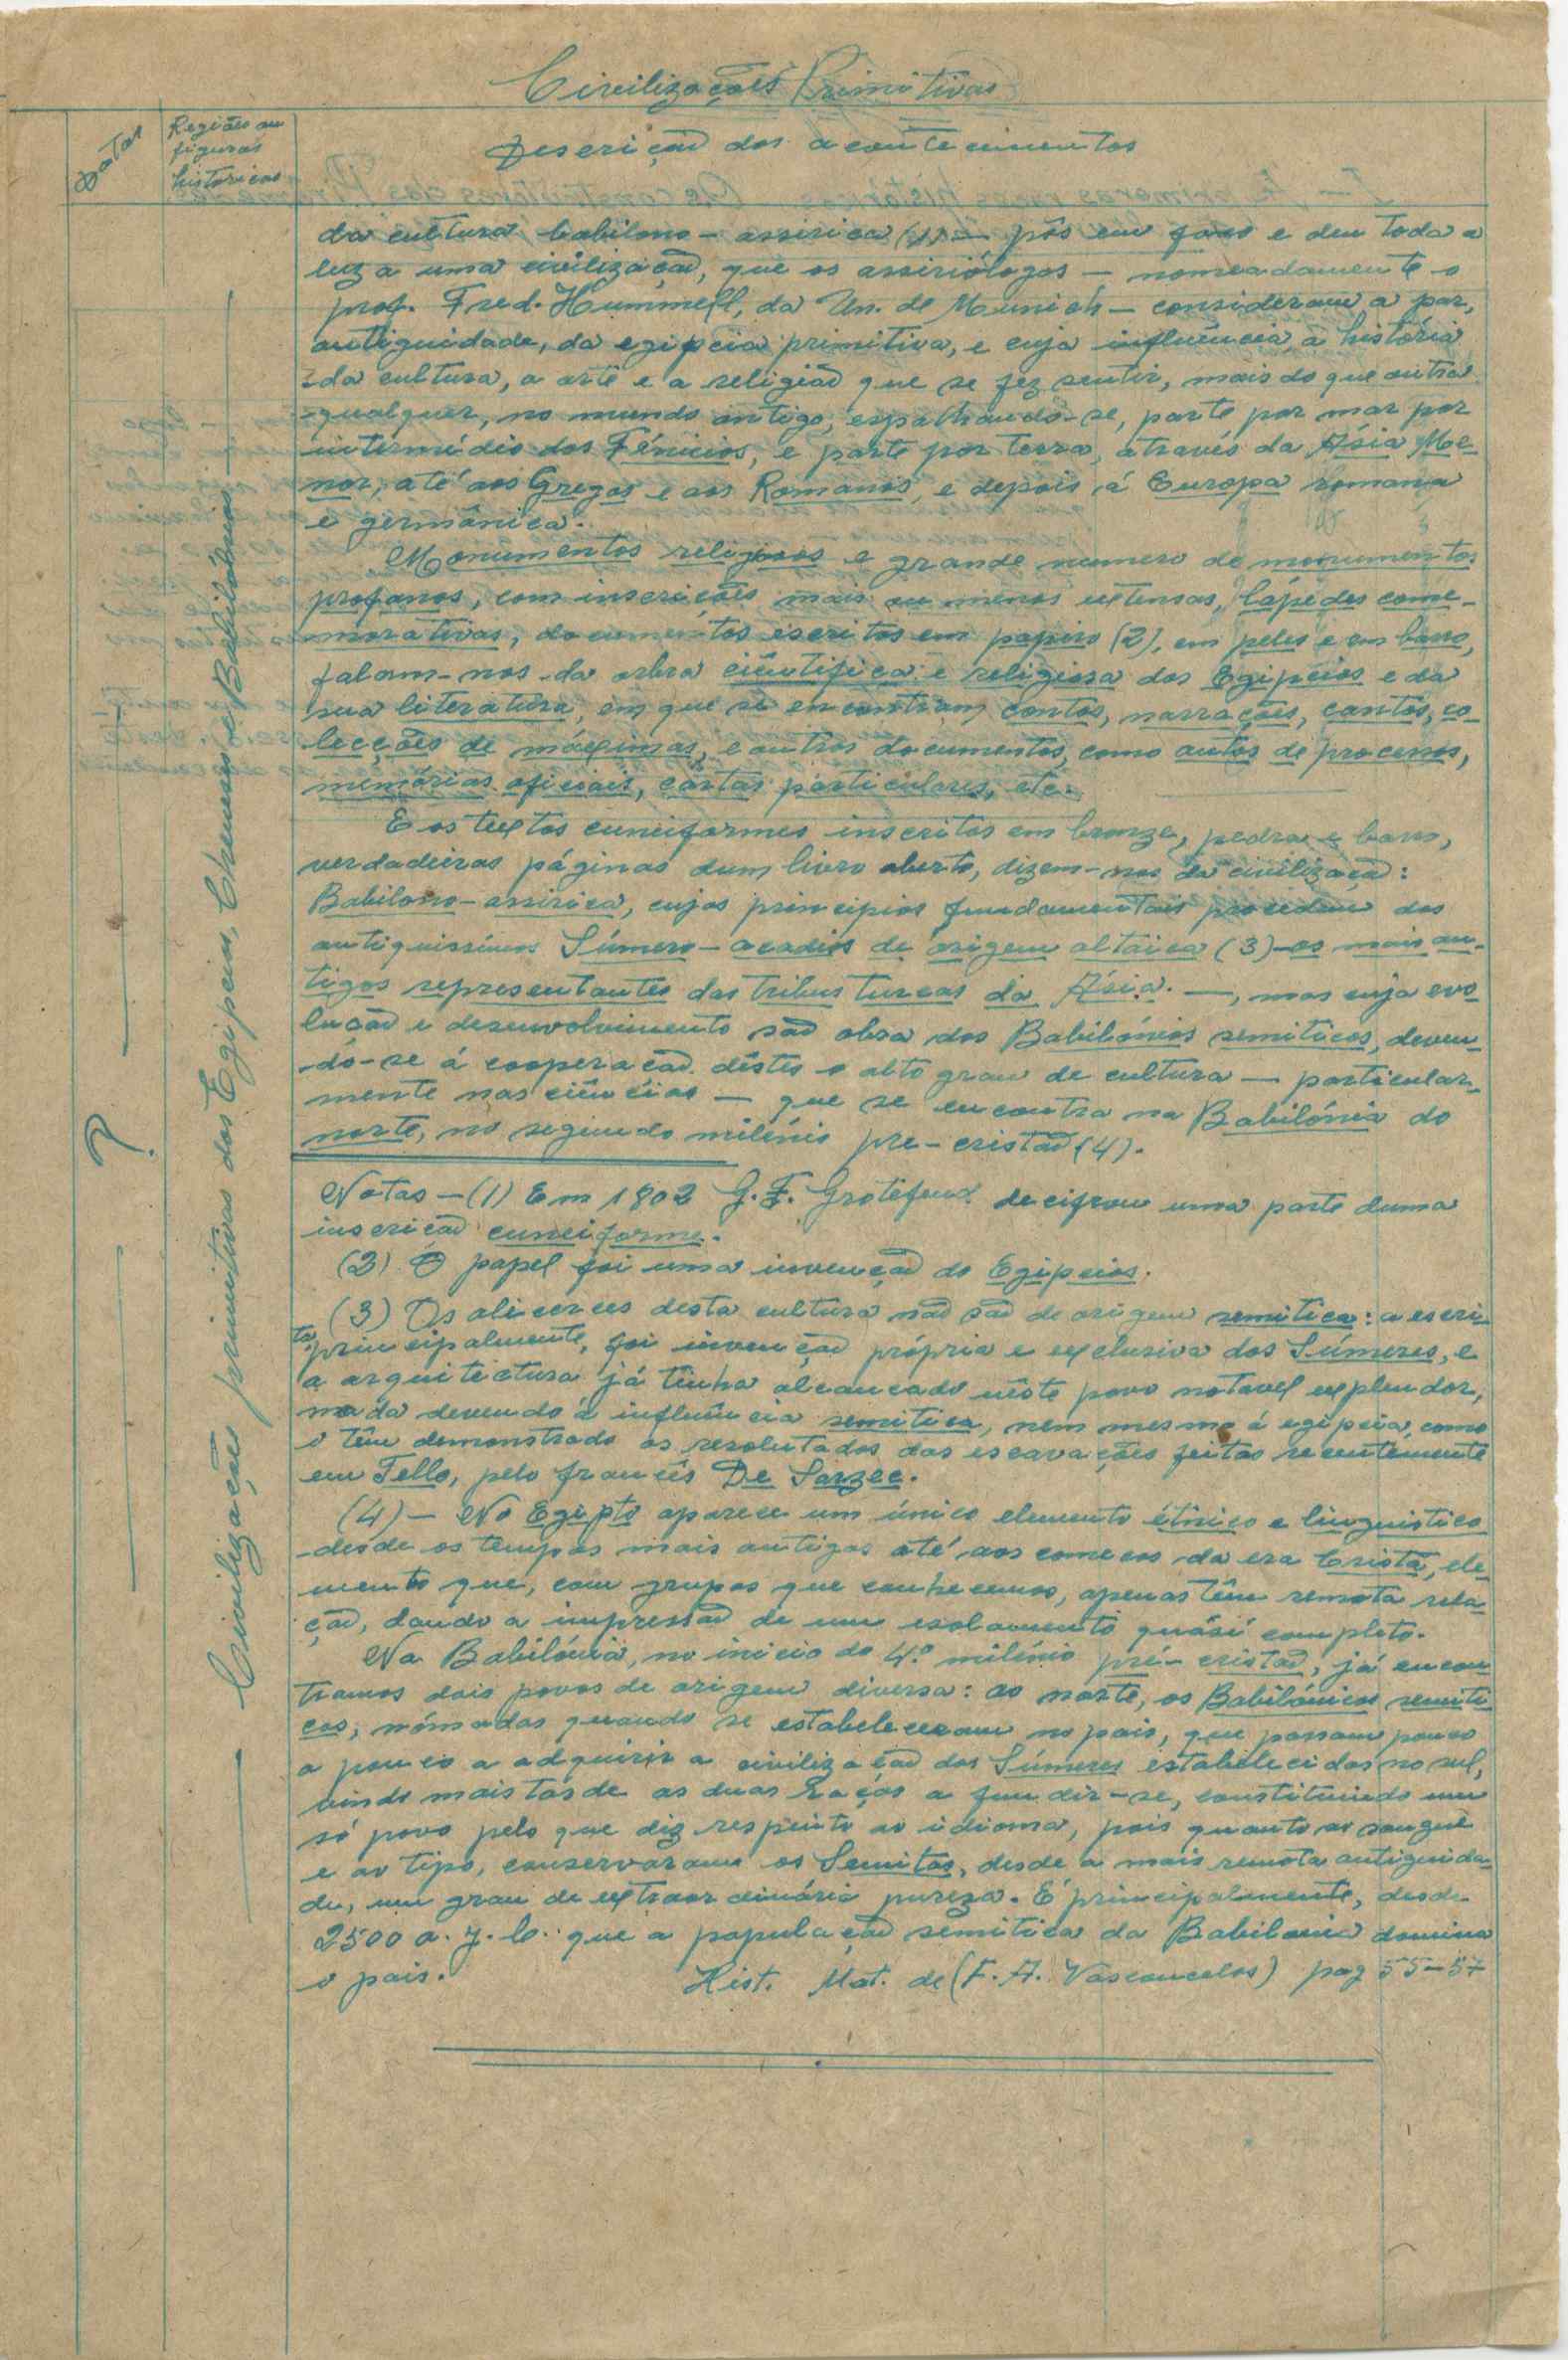 Civilizações Primitivas
Datas
Região ou
figuras
históricas
Descrição dos acontecimentos
da cultura babilono-assirica (1) — pôs em foco e deu toda a
luz a uma civilização, que os assiriólogos — nomeadamente o
prof. Fred. Hummell, da Un. de Munich — consideram a par,
antiguidade, da egipcia primitiva, e cuja influência a história
da cultura, a arte e a religião que se fez sentir, mais do que outra
qualquer, no mundo antigo, espalhando-se, parte por mar por
intermédio dos Fénicios, e parte por terra, através da Ásia Me-
nor, até aos Gregos e aos Romanos, e depois á Europa romana
e germânica.
Monumentos religiosos e grande numero de monumentos
profanos, com inscrições mais ou menos extensas, lápedes come-
morativas, documentos escritos em papiro (2), em peles e em barro,
falam-nos da obra ciêntifica e religiosa dos Egipcios e da
sua literatura, em que se encontram contos, narrações, cantos, co-
lecções de máximas, e outros documentos, como autos de processos,
memórias oficiais, cartas particulares, etc.
E os textos cuneiformes inscritos em bronze, pedra e barro,
verdadeiras páginas dum livro aberto, dizem-nos da civilização:
Babilono-assirica, cujos principios fundamentais procedem dos
antiquissimos Súmero-acadios de origem altaica (3) — os mais an-
tigos representantes das tribus turcas da Ásia. —, mas cuja evo-
lução e desenvolvimento são obra dos Babilónios semiticos, deven-
do-se á cooperação dêstes o alto grau de cultura — particular-
mente nas ciências — que se encontra na Babilónia do
norte, no segundo milénio pre-cristão (4).
Notas — (1) Em 1802 G. F. Grotefend decifrou uma parte duma
inscrição cuneiforme.
(2) O papel foi uma invenção do Egipcios.
(3) Os alicerces desta cultura não são de origem semitica: a escri-
ta, principalmente, foi invenção própria e exclusiva dos Súmeres, e
a arquitectura já tinha alcançado nêste povo notavel explendor,
nada devendo á influência semitica, nem mesmo á egipcia, como
o têm demonstrado os resolutados das escavações feitas recentemente
em Tello, pelo francês De Sarzec.
(4) — No Egipto aparece um único elemento étnico e linguistico
desde os tempos mais antigos até aos começos da era Cristã, ele-
mento que, com grupos que conhecemos, apenas têm remota rela-
ção, dando a impressão de um esolamento quási completo.
Na Babilónia, no inicio do 4.º milénio pré-cristão, já encon-
tramos dois povos de origem diversa: ao norte, os Babilónicos semiti-
cos, nómadas quando se estabeleceram no pais, que passam pouco
a pouco a adquirir a civilização dos Súmeres estabelecidos no sul,
vindo mais tarde as duas raças a fundir-se, constituindo um
só povo pelo que diz respeito ao idioma, pois quanto ao sangue
e ao tipo, conservaram os Semitas, desde a mais remota antiguida-
de, um grau de extraordinária pureza. É principalmente, desde
2500 a. J. C. que a população semitica da Babilonia domina
o pais.
Hist. Mat. de (F. A. Vasconcelos) pag 55-57
?
— Civilizações primitivas dos Egipcios, Chineses e Babilónios —